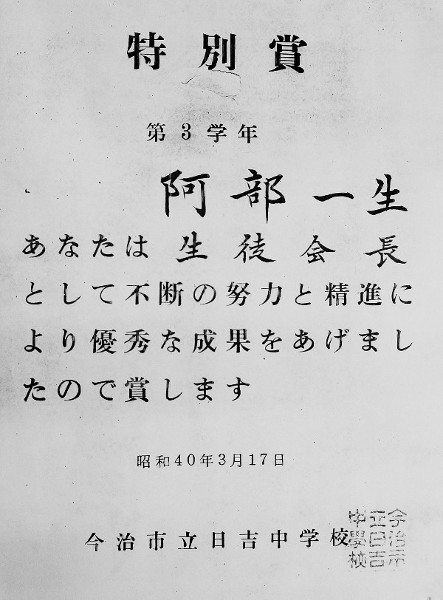 特別賞
第3学年
阿部一生
あなたは生徒会長
として不断の努力と精進に
より優秀な成果をあげまし
たので賞します
昭和40年3月17日
今治市立日吉中学校
今治市
立日吉
中學校